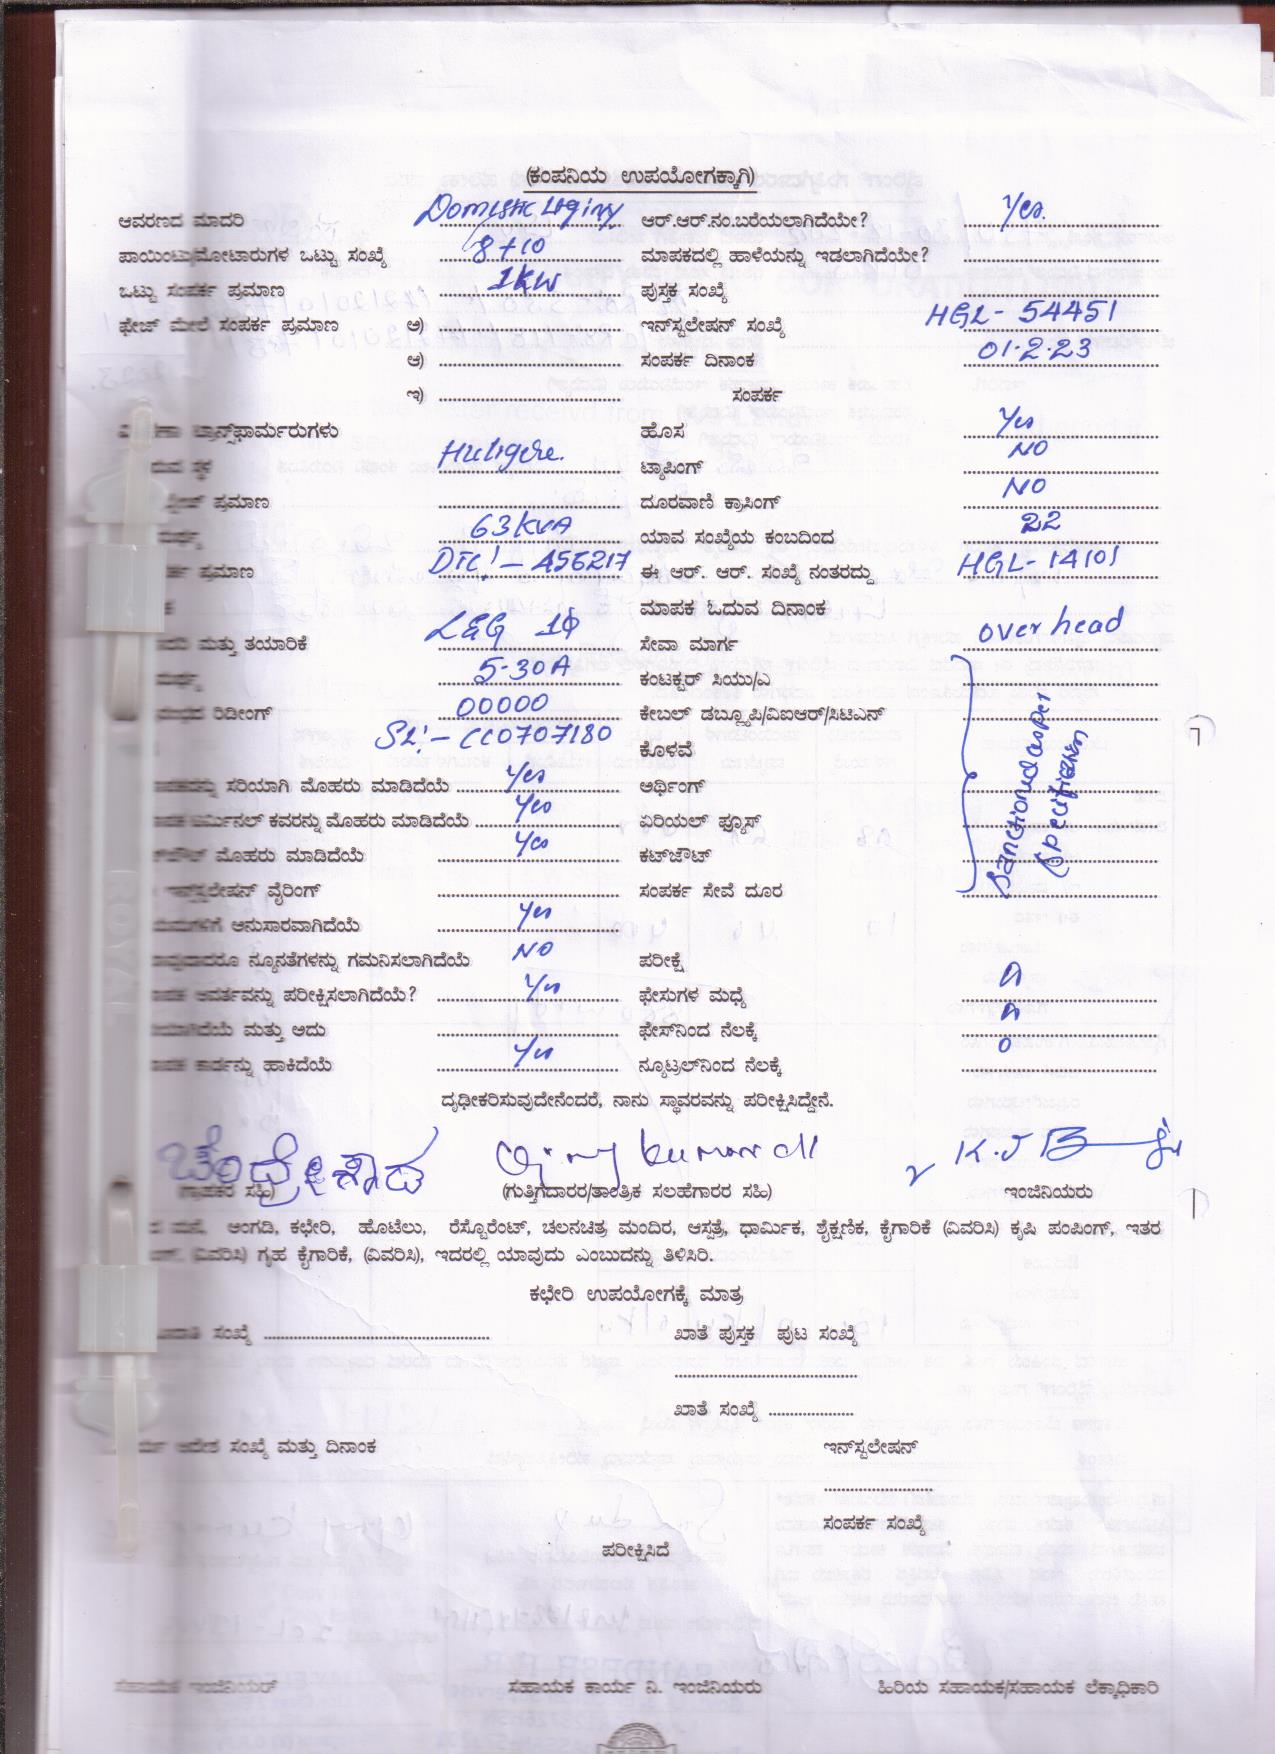 (ಕಂಪನಿಯ ಉಪಯೋಗಕ್ಕಾಗಿ)
ಆವರಣದ ಮಾದರಿ Domestic Liginy ಆರ್.ಆರ್.ನಂ.ಬರೆಯಲಾಗಿದೆಯೇ? Yes.
ಪಾಯಿಂಟು/ಮೋಟಾರುಗಳ ಒಟ್ಟು ಸಂಖ್ಯೆ 8+10 ಮಾಪಕದಲ್ಲಿ ಹಾಳೆಯನ್ನು ಇಡಲಾಗಿದೆಯೇ?
ಒಟ್ಟು ಸಂಪರ್ಕ ಪ್ರಮಾಣ 1KW ಪುಸ್ತಕ ಸಂಖ್ಯೆ
ಫೇಜ್ ಮೇಲೆ ಸಂಪರ್ಕ ಪ್ರಮಾಣ ಅ) ಇನ್‌ಸ್ಟಲೇಷನ್ ಸಂಖ್ಯೆ HGL- 54451
ಆ) ಸಂಪರ್ಕ ದಿನಾಂಕ 01.2.23
ಇ) ಸಂಪರ್ಕ
ಟ್ರಾನ್ಸ್‌ಫಾರ್ಮರುಗಳು ಹೊಸ Yes
ಸ್ಥಳ Huligere. ಟ್ಯಾಪಿಂಗ್ NO
ಪ್ರಮಾಣ ದೂರವಾಣಿ ಕ್ರಾಸಿಂಗ್ NO
63KVA ಯಾವ ಸಂಖ್ಯೆಯ ಕಂಬದಿಂದ 22
ಪ್ರಮಾಣ DTC!- A56217 ಈ ಆರ್. ಆರ್. ಸಂಖ್ಯೆ ನಂತರದ್ದು HGL-14101
ಮಾಪಕ ಓದುವ ದಿನಾಂಕ
ಮತ್ತು ತಯಾರಿಕೆ L&G 1Φ ಸೇವಾ ಮಾರ್ಗ over head
5-30A ಕಂಟಕ್ಟರ್ ಸಿಯು/ಎ
ರಿಡೀಂಗ್ 00000 ಕೇಬಲ್ ಡಬ್ಲ್ಯೂಪಿ/ವಿಐಆರ್/ಸಿಟಿಎನ್
SL!- CC0707180 ಕೊಳವೆ
ಸರಿಯಾಗಿ ಮೊಹರು ಮಾಡಿದೆಯೆ Yes ಅರ್ಥಿಂಗ್
ಟರ್ಮಿನಲ್ ಕವರನ್ನು ಮೊಹರು ಮಾಡಿದೆಯೆ Yes ಏರಿಯಲ್ ಫ್ಯೂಸ್
ಮೊಹರು ಮಾಡಿದೆಯೆ Yes ಕಟ್‌ಔಟ್
Sanctioned as per
Specification
ಇನ್‌ಸ್ಟಲೇಷನ್ ವೈರಿಂಗ್ ಸಂಪರ್ಕ ಸೇವೆ ದೂರ
ಅನುಸಾರವಾಗಿದೆಯೆ Yes
ನ್ಯೂನತೆಗಳನ್ನು ಗಮನಿಸಲಾಗಿದೆಯೆ NO ಪರೀಕ್ಷೆ
ಆವರ್ತವನ್ನು ಪರೀಕ್ಷಿಸಲಾಗಿದೆಯೆ? Yes ಫೇಸುಗಳ ಮಧ್ಯೆ
ಮತ್ತು ಅದು ಫೇಸ್‌ನಿಂದ ನೆಲಕ್ಕೆ
ಕಾರ್ಡನ್ನು ಹಾಕಿದೆಯೆ Yes ನ್ಯೂಟ್ರಲ್‌ನಿಂದ ನೆಲಕ್ಕೆ 0
ದೃಢೀಕರಿಸುವುದೇನೆಂದರೆ, ನಾನು ಸ್ಥಾವರವನ್ನು ಪರೀಕ್ಷಿಸಿದ್ದೇನೆ.
(ಗ್ರಾಹಕರ ಸಹಿ) (ಗುತ್ತಿಗೆದಾರರ/ತಾಂತ್ರಿಕ ಸಲಹೆಗಾರರ ಸಹಿ) ಇಂಜಿನಿಯರು
ಮನೆ, ಅಂಗಡಿ, ಕಛೇರಿ, ಹೊಟೆಲು, ರೆಸ್ಟೊರೆಂಟ್, ಚಲನಚಿತ್ರ ಮಂದಿರ, ಆಸ್ಪತ್ರೆ, ಧಾರ್ಮಿಕ, ಶೈಕ್ಷಣಿಕ, ಕೈಗಾರಿಕೆ (ವಿವರಿಸಿ) ಕೃಷಿ ಪಂಪಿಂಗ್, ಇತರ
(ವಿವರಿಸಿ) ಗೃಹ ಕೈಗಾರಿಕೆ, (ವಿವರಿಸಿ), ಇದರಲ್ಲಿ ಯಾವುದು ಎಂಬುದನ್ನು ತಿಳಿಸಿರಿ.
ಕಛೇರಿ ಉಪಯೋಗಕ್ಕೆ ಮಾತ್ರ
ಸಂಖ್ಯೆ ಖಾತೆ ಪುಸ್ತಕ ಪುಟ ಸಂಖ್ಯೆ
ಖಾತೆ ಸಂಖ್ಯೆ
ಆದೇಶ ಸಂಖ್ಯೆ ಮತ್ತು ದಿನಾಂಕ ಇನ್‌ಸ್ಟಲೇಷನ್
ಸಂಪರ್ಕ ಸಂಖ್ಯೆ
ಪರೀಕ್ಷಿಸಿದೆ
ಸಹಾಯಕ ಇಂಜಿನಿಯರ್ ಸಹಾಯಕ ಕಾರ್ಯ ನಿ. ಇಂಜಿನಿಯರು ಹಿರಿಯ ಸಹಾಯಕ/ಸಹಾಯಕ ಲೆಕ್ಕಾಧಿಕಾರಿ